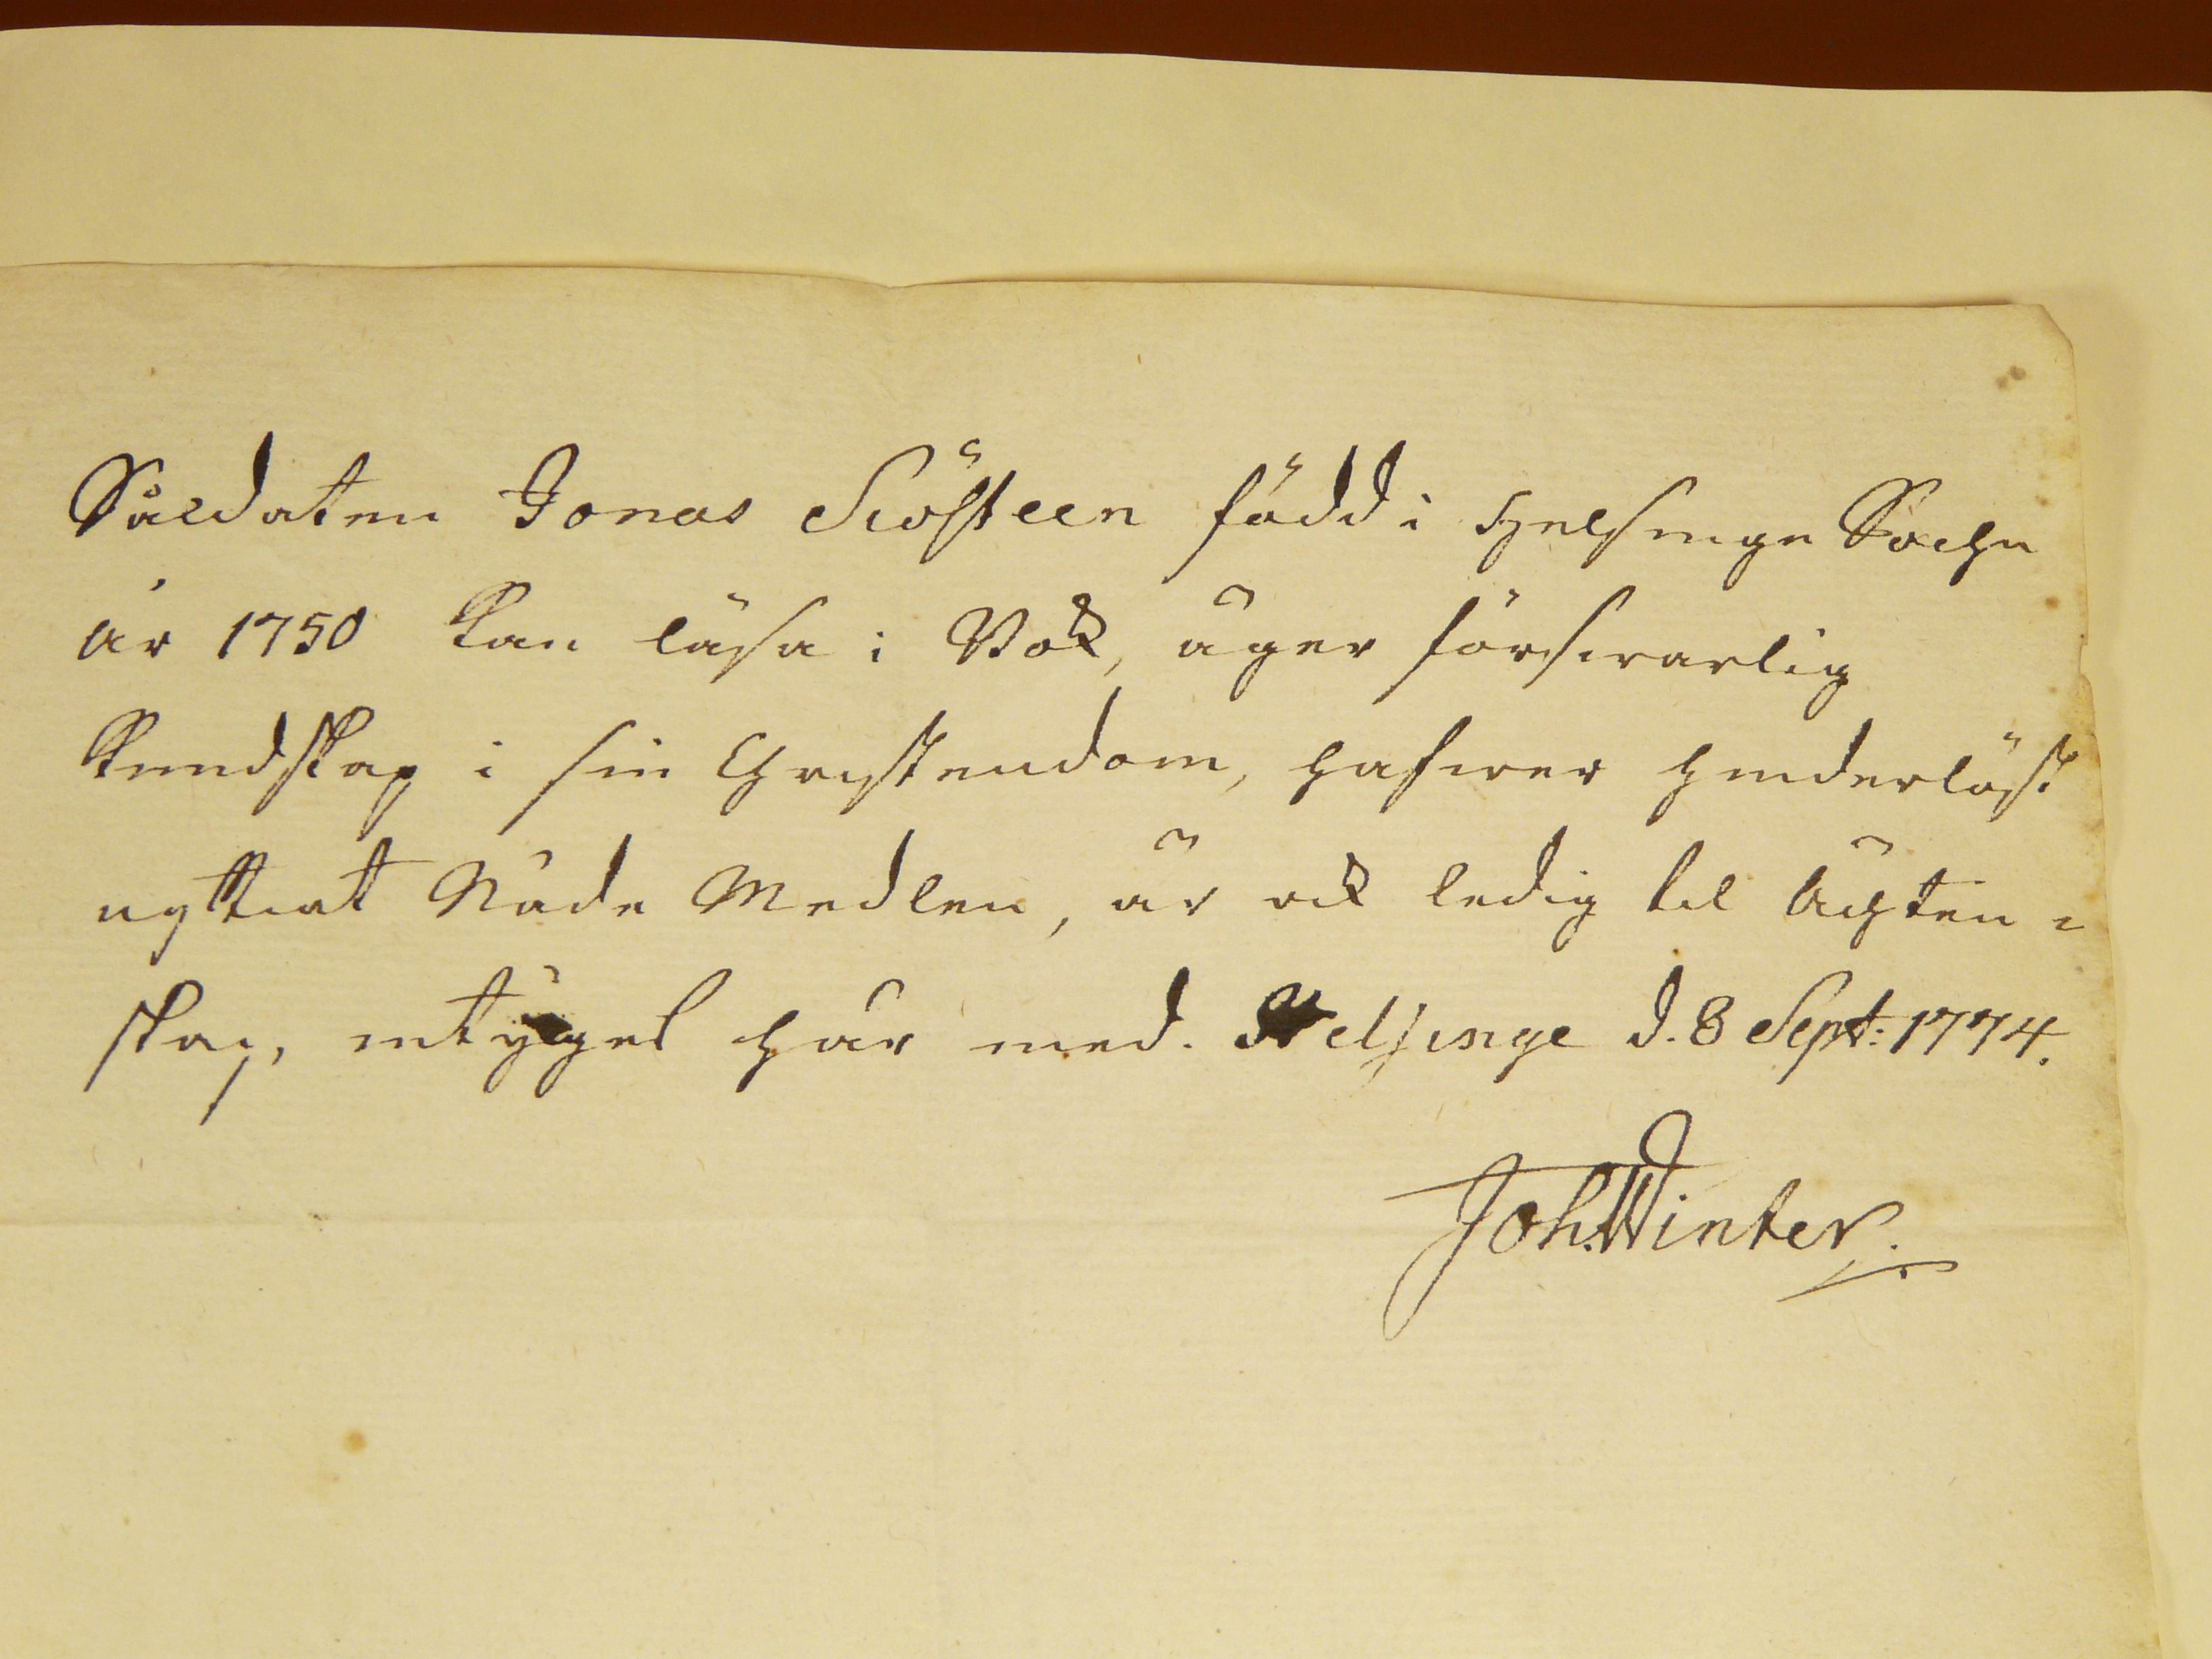 Såldaten Jonas Siösteen född i Helsinge Sochn
år 1750 kan läsa i Bok, äger försvarlig
kundskap i sin Christendom, hafwer hinderlöst
nyttiat Nåde Medlen, är ock ledig til Ächten=
skap, intÿges här med. Helsinge d. 8 Sept: 1774.
Joh. Winter.